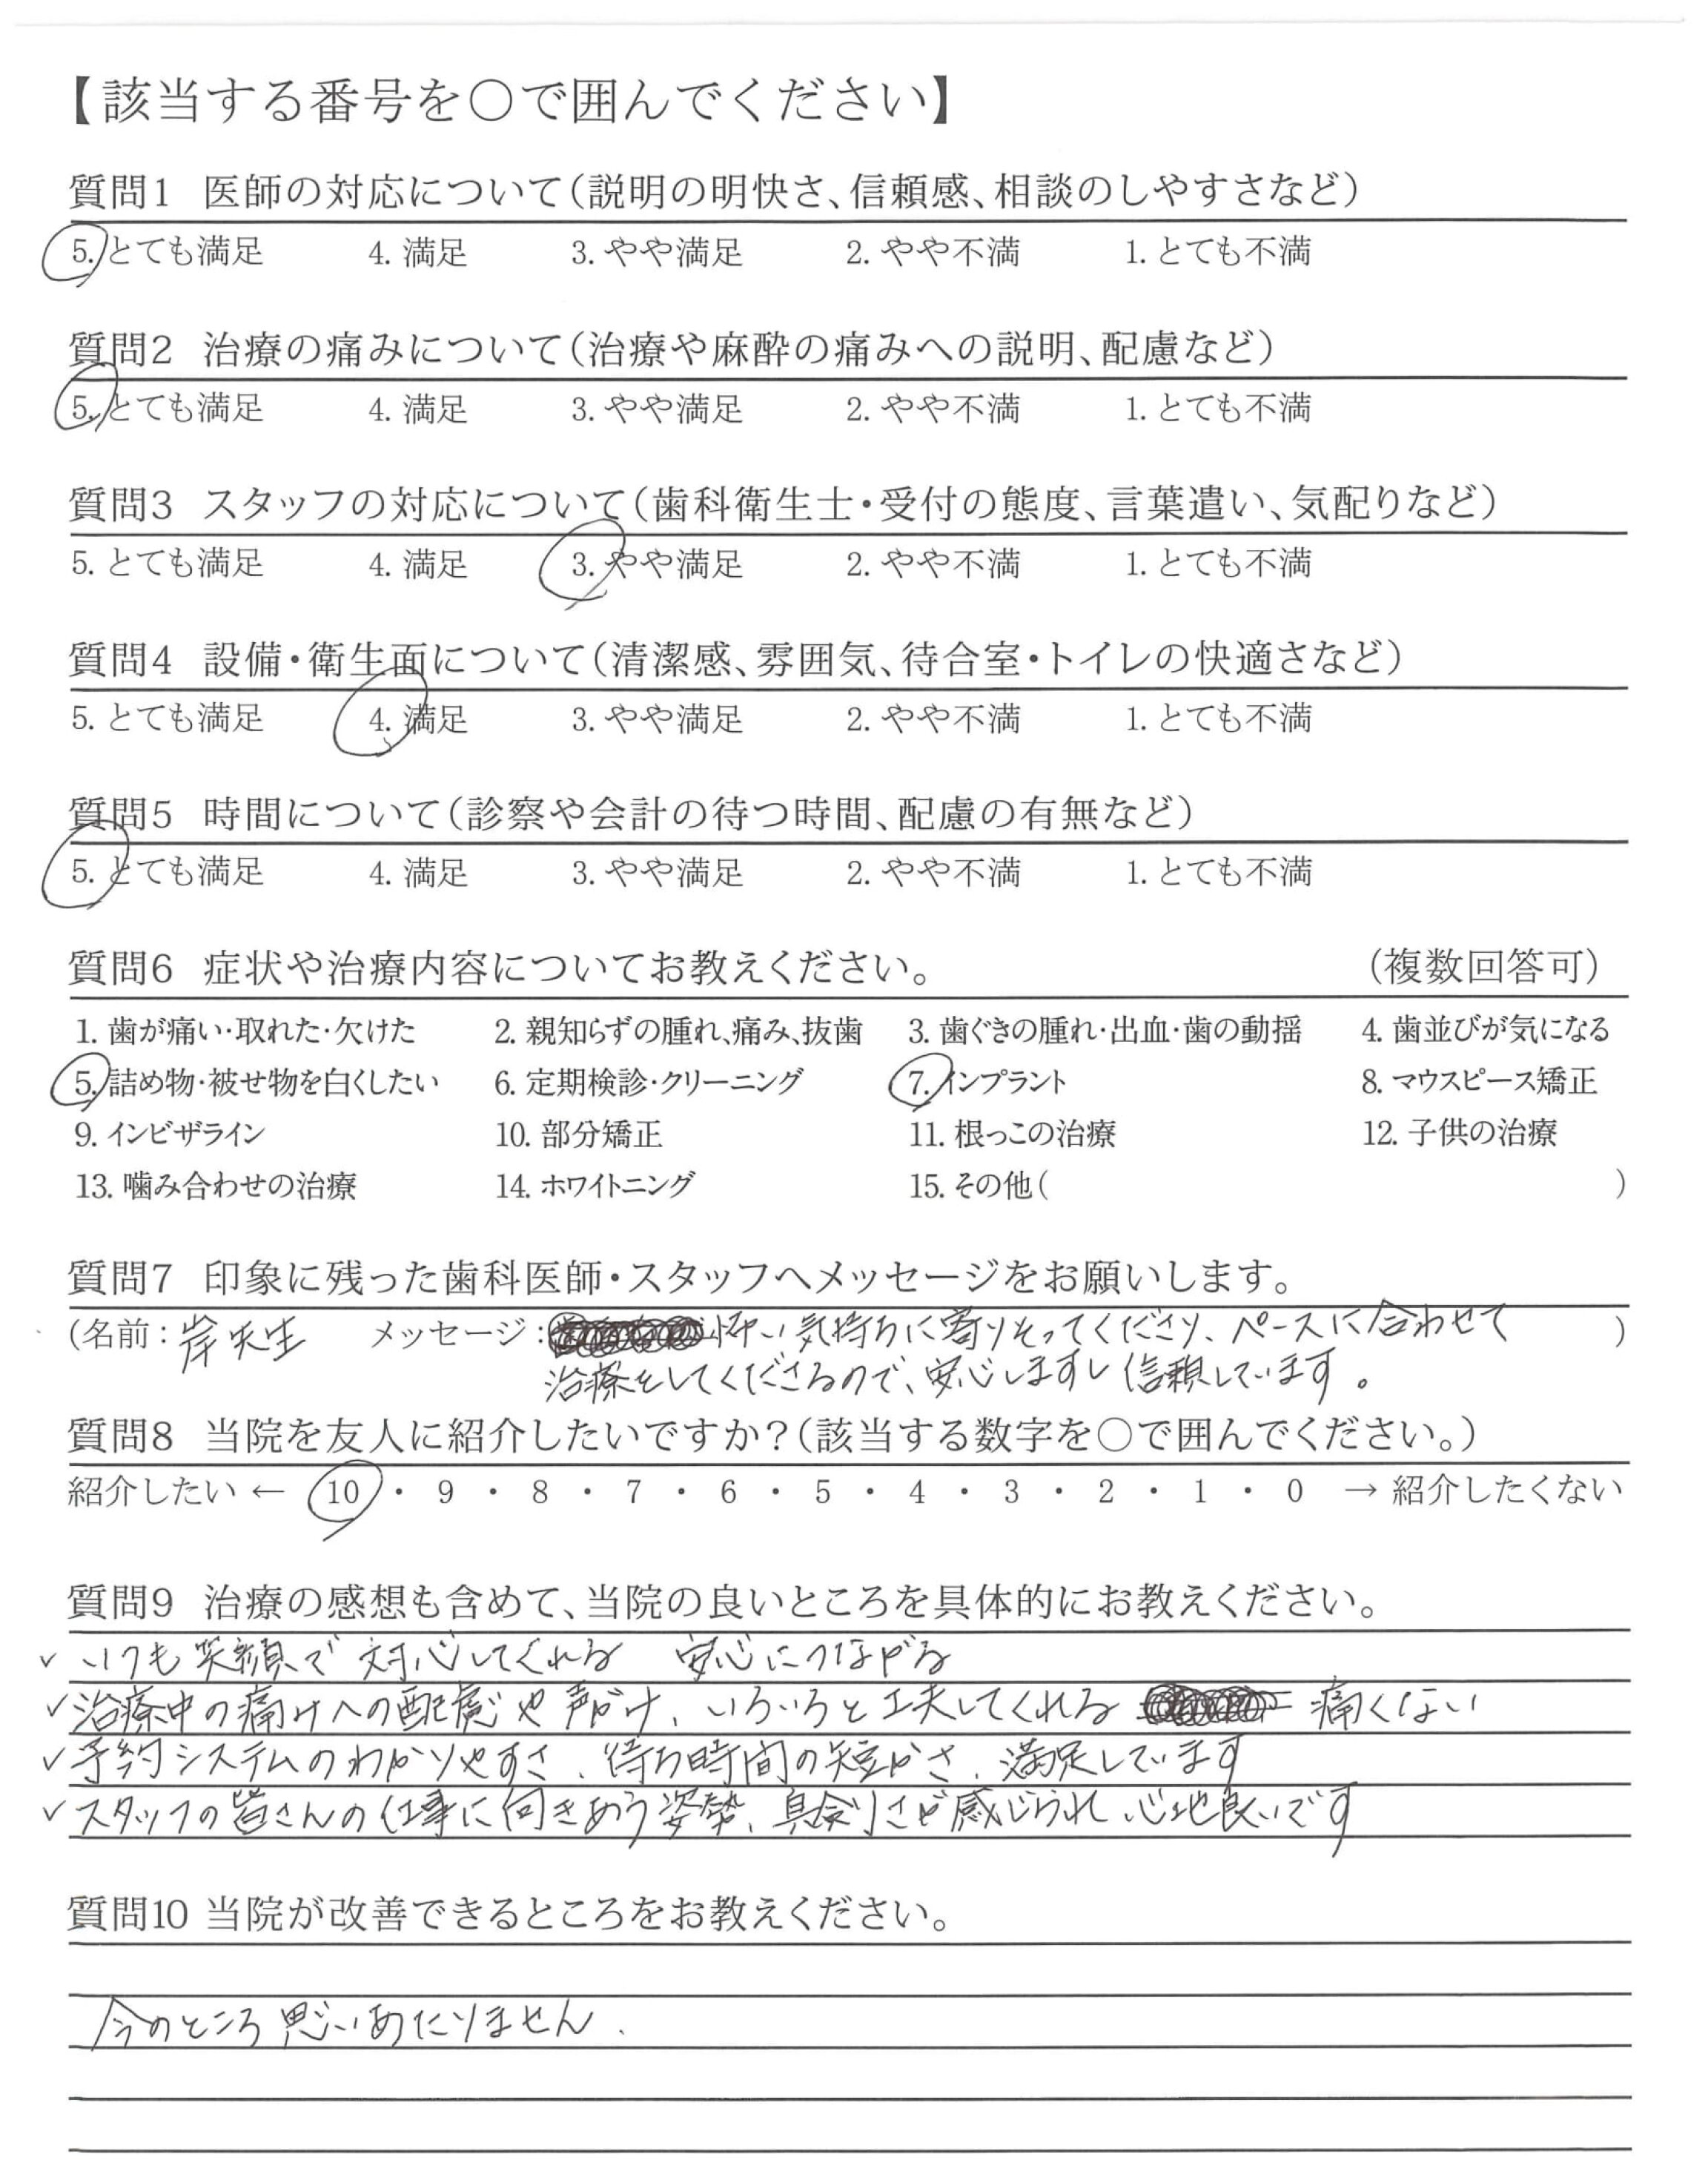 【該当する番号を○で囲んでください】
質問1 医師の対応について(説明の明快さ、信頼感、相談のしやすさなど)
5. とても満足 4. 満足 3. やや満足 2. やや不満 1. とても不満
質問2 治療の痛みについて(治療や麻酔の痛みへの説明、配慮など)
5. とても満足 4. 満足 3. やや満足 2. やや不満 1. とても不満
質問3 スタッフの対応について(歯科衛生士・受付の態度、言葉遣い、気配りなど)
5. とても満足 4. 満足 3. やや満足 2. やや不満 1. とても不満
質問4 設備・衛生面について(清潔感、雰囲気、待合室・トイレの快適さなど)
5. とても満足 4. 満足 3. やや満足 2. やや不満 1. とても不満
質問5 時間について(診察や会計の待つ時間、配慮の有無など)
5. とても満足 4. 満足 3. やや満足 2. やや不満 1. とても不満
質問6 症状や治療内容についてお教えください。 (複数回答可)
1. 歯が痛い・取れた・欠けた 2. 親知らずの腫れ、痛み、抜歯 3. 歯ぐきの腫れ・出血・歯の動揺 4. 歯並びが気になる
5. 詰め物・被せ物を白くしたい 6. 定期検診・クリーニング 7. インプラント 8. マウスピース矯正
9. インビザライン 10. 部分矯正 11. 根っこの治療 12. 子供の治療
13. 噛み合わせの治療 14. ホワイトニング 15. その他( )
質問7 印象に残った歯科医師・スタッフへメッセージをお願いします。
(名前 : 岸先生 メッセージ : 怖い気持ちに寄りそってくださり、ペースに合わせて )
治療をしてくださるので、安心しますし信頼しています。
質問8 当院を友人に紹介したいですか?(該当する数字を○で囲んでください。)
紹介したい ← 10 ・ 9 ・ 8 ・ 7 ・ 6 ・ 5 ・ 4 ・ 3 ・ 2 ・ 1 ・ 0 → 紹介したくない
質問9 治療の感想も含めて、当院の良いところを具体的にお教えください。
✓ いつも笑顔で対応してくれる 安心につながる
✓ 治療中の痛みへの配慮や声がけ、いろいろと工夫してくれる 痛くない
✓ 予約システムのわかりやすさ、待ち時間の短かさ、満足しています
✓ スタッフの皆さんの仕事に向きあう姿勢、真剣さが感じられ心地良いです
質問10 当院が改善できるところをお教えください。
今のところ思いあたりません.